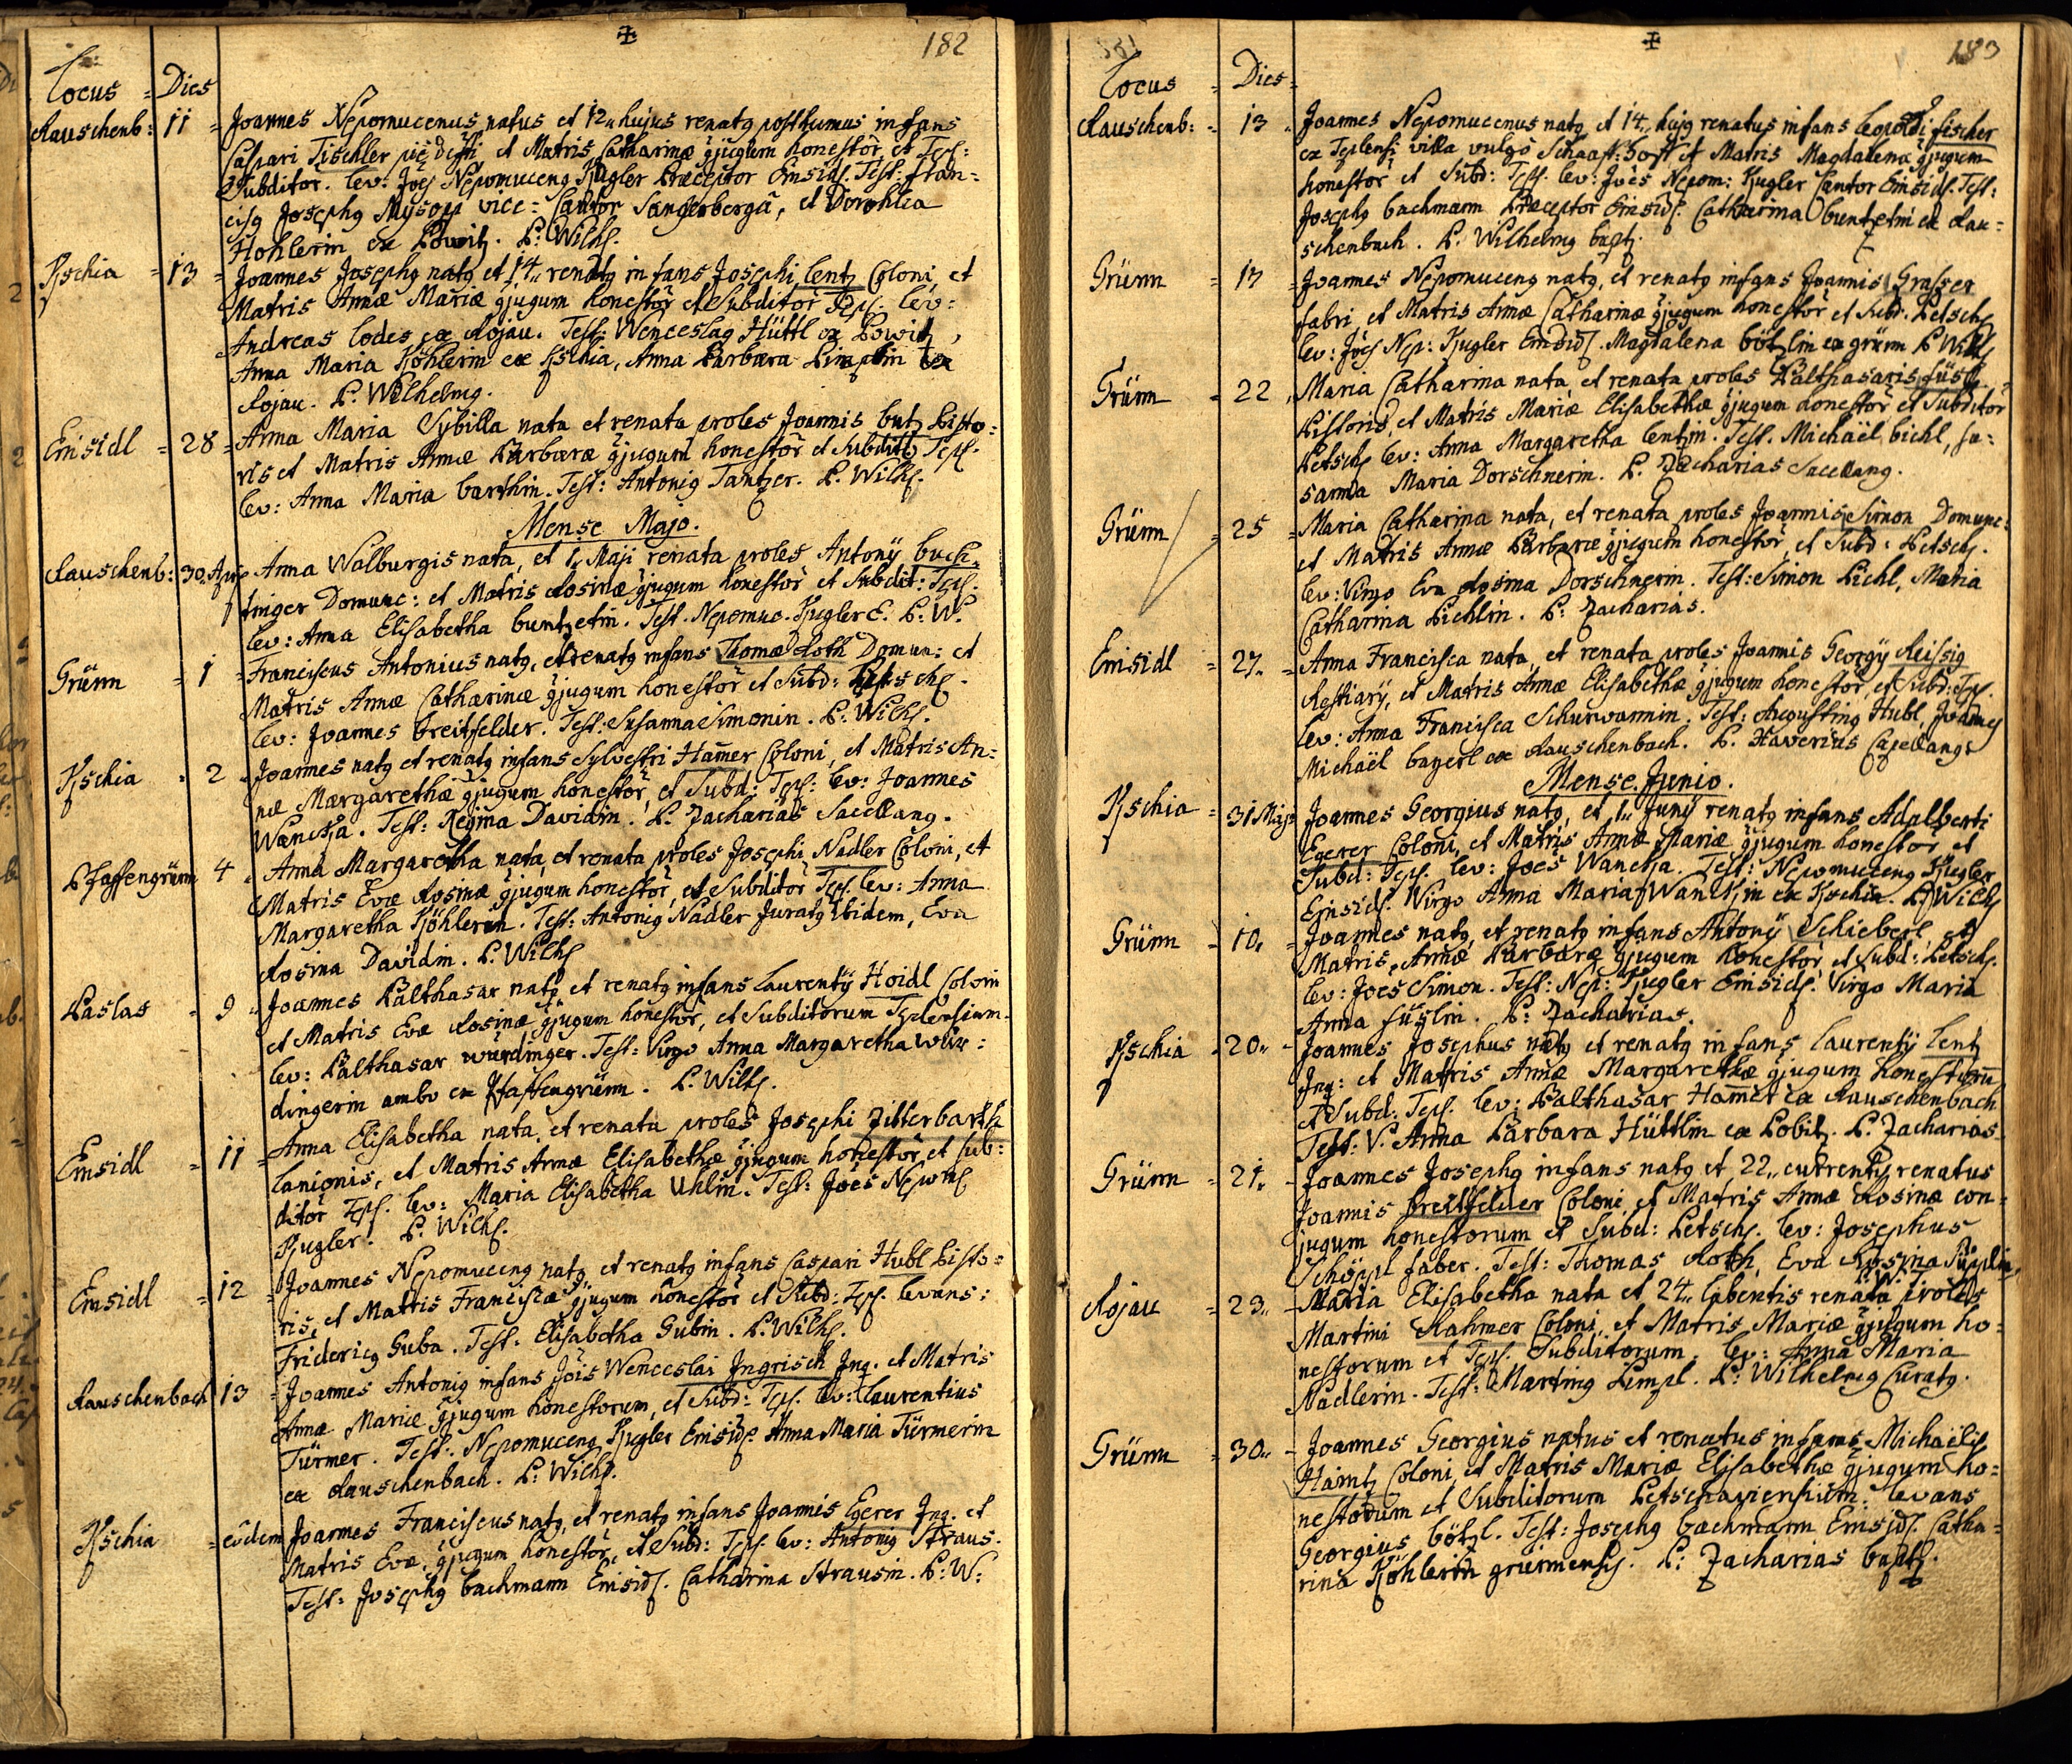 182
Locus = Dies
Rauschenb: 11 = Joannes Nepomucenus natus et 12" hujus renatq posthumus infans
Caspari Tischler pie defti et Matris Catharinæ gjugum honestor et Tepl:
Subditor. lev: Joes Nepomuceng Kugler Præceptor Einsidl. Test: fran=
cisq Josephq vice=Cantor Sangerbergâ, et Dorothea
Hohlerin ex Powitz. P: Wilh.
Kschia = 13 = Joannes Josephq natq et 14" renatq infans Josephi lentz Coloni, et
Matris Annæ Mariæ gjugum honestor et Subditor Tepl. lev:
Andreas lodes ex Rojau. Test: Wenceslaq Hüttl ex Powitz,
Anna Maria Köhlerin ex Kschia, Anna Barbara ex
Rojau. P. Wilhelmq.
Einsidl = 28 = Anna Maria Sybilla nata et renata proles Joannis butz Pisto=
ris et Matris Annæ Barbaræ gjugum honestor et Subdit Tepl.
lev: Anna Maria barthin. Test: Antoniq Tantzer. P. Wilh.
Mense Majo.
Rauschenb: 30 Apr Anna Walburgis nata, et 1" Maji renata proles Antonÿ buch=
tinger Domunc: et Matris Rosinæ gjugum honestor et Subdit: Tepl.
lev: Anna Elisabetha buntzetin. Test. Nepomuc. Kugler E. P: W.
Grünn = 1 = Franciscus Antonius natq, et renatq infans Thomæ Roth Domun: et
Matris Annæ Catharinæ gjugum honestor et Subd: Petsch.
lev: Joannes breitfelder. Test: Susanna Simonin. P: Wilh.
Kschia = 2 = Joannes natq et renatq infans Sylvestri Hamer Coloni, et Matris An=
næ Margarethæ gjugum honestor, et Subd: Tepl: lev: Joannes
Wancka. Test: Regina Davidin. P. Zacharias Sacellanq.
Pfaffengrünn 4 = Anna Margaretha nata, et renata proles Josephi Nadler Coloni, et
Matris Evæ Rosinæ gjugum honestor, et Subditor Tepl. lev: Anna
Margaretha Köhlerin. Test: Antoniq Nadler Juratq ibidem, Eva
Rosina Davidin. P. Wilh
Paslas = 9 = Joannes Balthasar natq et renatq infans Laurentÿ Hoidl Coloni
et Matris Evæ Rosinæ gjugum honestor, et Subditorum Teplensium.
lev: Balthasar würdinger. Test: Virgo Anna Margaretha wür=
dingerin ambo ex Pfaffengrünn. P. Wilh.
Einsidl = 11 = Anna Elisabetha nata, et renata proles Josephi Zitterbarth
lanionis, et Matris Annæ Elisabethæ gjugum honestor, et Sub:
ditor Tepl. lev: Maria Elisabetha Uhlin. Test: Joes Nepom
Kugler. P. Wilh.
Einsidl = 12 = Joannes Nepomuceng natq, et renatq infans Caspari Hubl Pisto=
ris, et Matris Franciscæ gjugum honestor et Subd: Tepl. levans:
Fridericq Guba. Test: Elisabetha Gubin. P. Wilh.
Rauschenbach 13 = Joannes Antoniq infans Jois Wenceslai Ingrisch Inq. et Matris
Annæ Mariæ gjugum honestorum, et Subd: Tepl. lev: Laurentius
Türmer. Test: Nepomuceng Kugler Einsidl. Anna Maria Türmerin
ex Rauschenbach. P: Wilh.
Kschia = eôdem Joannes Franciscus natq, et renatq infans Joannis Egerer Inq. et
Matris Evæ gjugum honestor, et Subd: Tepl. lev: Antoniq Straus.
Test: Josephq bachmann Einsidl. Catharina Strausin. P: W:
183
Locus = Dies =
Rauschenb: = 13 = Joannes Nepomucenus natq et 14" hujq renatus infans leopoldi fischer
ex Teplensi villa vulgo Schaaf=hoff et Matris Magdalenæ gjugum
honestor et Subd: Tepl. lev: Joes Nepom: Kugler Cantor Einsidl. Test:
Josephq bachmann Præceptor Einsidl. Catharina buntzetin ex Rau=
schenbach. P. Wilhelmq bapt.
Grünn = 17 = Joannes Nepomuceng natq, et renatq infans Joannis Grasser
fabri, et Matris Annæ Catharinæ gjugum honestor et Subd. Petsch
lev: Joes Nep: Kugler Einsidl. Magdalena bötzlin ex grünn P Wilh
Grünn = 22 = Maria Catharina nata, et renata proles Balthasaris füsl
Pistoris et Matris Mariæ Elisabethæ gjugum honestor et Subditor
Petsch lev: Anna Margaretha lentzin. Test. Michaël bichl, su=
sanna Maria Dorschnerin. P. Zacharias Sacellanq.
Grünn = 25 = Maria Catharina nata, et renata proles Joannis Simon Domunc:
et Matris Annæ Barbaræ gjugum honestor, et Subd: Petsch.
lev: Virgo Eva Rosina Dorschnerin. Test: Simon Pichl, Maria
Catharina Pichlin. P: Zacharias.
Einsidl = 27" = Anna Francisca nata, et renata proles Joannis Georgÿ Reissig
Restiarÿ, et Matris Annæ Elisabethæ gjugum honestor, et Subd: Tepl.
lev: Anna Francisca Schurwannin. Test: Augustinq Hubl, Joannes
Michaël bayerl ex Rauschenbach. P. Xaverius Capellanq.
Mense Junio.
Kschia = 31 Maji = Joannes Georgius natq, et 1" Junÿ renatq infans Adalberti
Egerer Coloni, et Matris Annæ Mariæ gjugum honestor et
Subd: Tepl. lev: Joes Wancka. Test: Nepomuceng Kugler
Einsidl. Virgo Anna Maria Wanckin ex Kschia. P Wilh
Grünn = 10" = Joannes natq, et renatq infans Antonÿ Schieberl et
Matris Annæ Barbaræ gjugum honestor, et Subd: Petsch.
lev: Joes Simon. Test: Nep: Kugler Einsidl. Virgo Maria
Anna füslin. P: Zacharias.
Kschia = 20" = Joannes Josephus natq et renatq infans Laurentÿ lentz
Inq: et Matris Annæ Margarethæ gjugum honestorū
et Subd: Tepl. lev: Balthasar Hamer ex Rauschenbach
Test: V. Anna Barbara Hüttlin ex Pobitz. P. Zacharias
Grünn = 21" = Joannes Josephq infans natq et 22" currentis renatus
Joannis breitfelder Coloni, et Matris Annæ Rosinæ con=
jugum honestorum et Subd: Petsch. lev: Josephus
Schöppl faber. Test: Thomas Roth, Eva Rosina
Rojau = 23" = Maria Elisabetha nata et 24" labentis renata proles
Martini Rahmer Coloni, et Matris Mariæ gjugum ho=
nestorum et Tepl. Subditorum. lev: Anna Maria
Nadlerin. Test: Martinq Pimpl. P: Wilhelmq Curatq.
Grünn = 30" = Joannes Georgius natus et renatus infans Michaëlis
Haintz Coloni, et Matris Mariæ Elisabethæ gjugum ho=
nestorum et Subditorum Petschaviensium. levans
Georgius bötzl. Test: Josephq bachmann Einsidl. Catha=
rina Köhlerin grünnensis. P: Zacharias bapt.